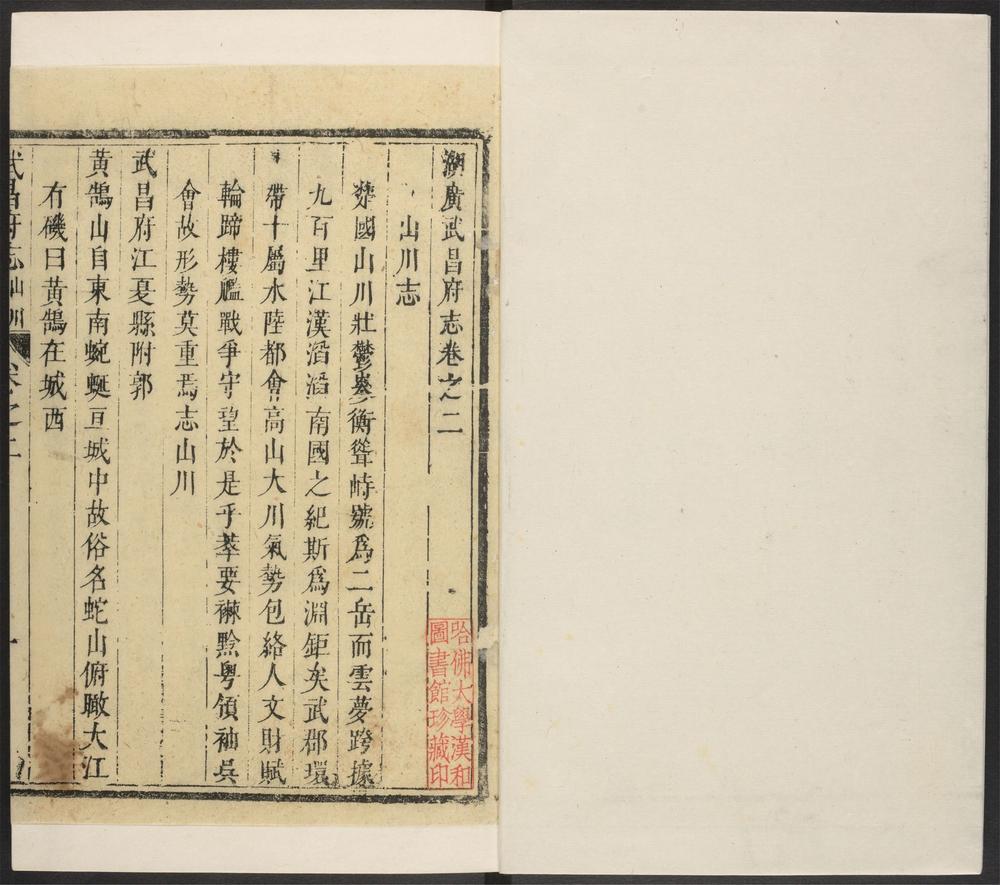 湖廣武昌府志卷之二
山川志
楚國山川壯鬱參衡聳峙號為二岳而雲夢跨據
九百里江漢滔滔南國之紀斯為淵鉅矣武郡環
帶十屬水陸都會高山大川氣勢包絡人文財賦
輪蹄樓艦戰爭守望於是乎萃要襟黔粵領袖吳
會故形勢莫重焉志山川
武昌府江夏縣附郭
黃鵠山自東南蜿蜒亘城中故俗名蛇山俯瞰大江
有磯曰黃鵠在城西
武昌府志 山川 卷之二 一
哈佛大學漢和
圖書館珍藏印